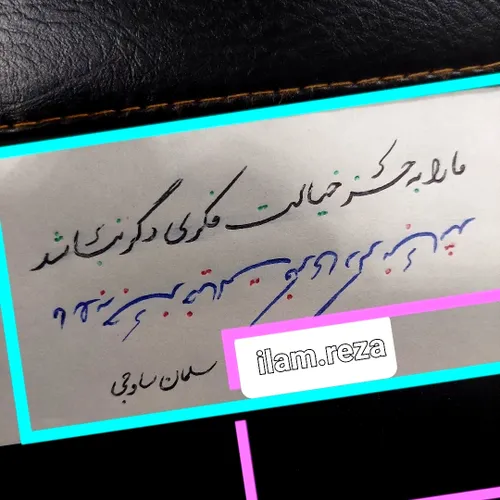 ما را به جز خیالت فکری دگر نباشد
ilam.reza
سلمان ساوجی